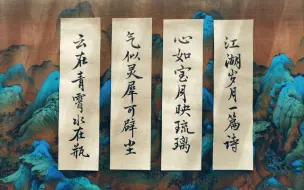 江湖岁月一篇诗
心如宝月映琉璃
气似灵犀可辟尘
云在青霄水在瓶